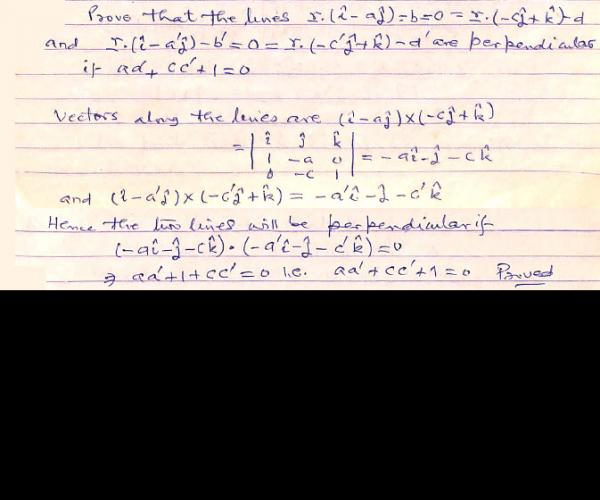 Prove that the lines r.(î-aĵ)=b=0 = r.(-cĵ+k̂)-d
and r.(î-a'ĵ)-b'=0=r.(-c'ĵ+k̂)-d' are perpendicular
if ad+cc'+1=0
Vectors along the lines are (î-aĵ)×(-cĵ+k̂)
= | î ĵ k̂ |
| 1 -a 0 | = -aî-ĵ-ck̂
| 0 -c 1 |
and (î-a'ĵ)×(-c'ĵ+k̂) = -a'î-ĵ-c'k̂
Hence the two lines will be perpendicular if
(-aî-ĵ-ck̂)·(-a'î-ĵ-c'k̂)=0
⇒ aa'+1+cc'=0 i.e. aa'+cc'+1=0 Proved